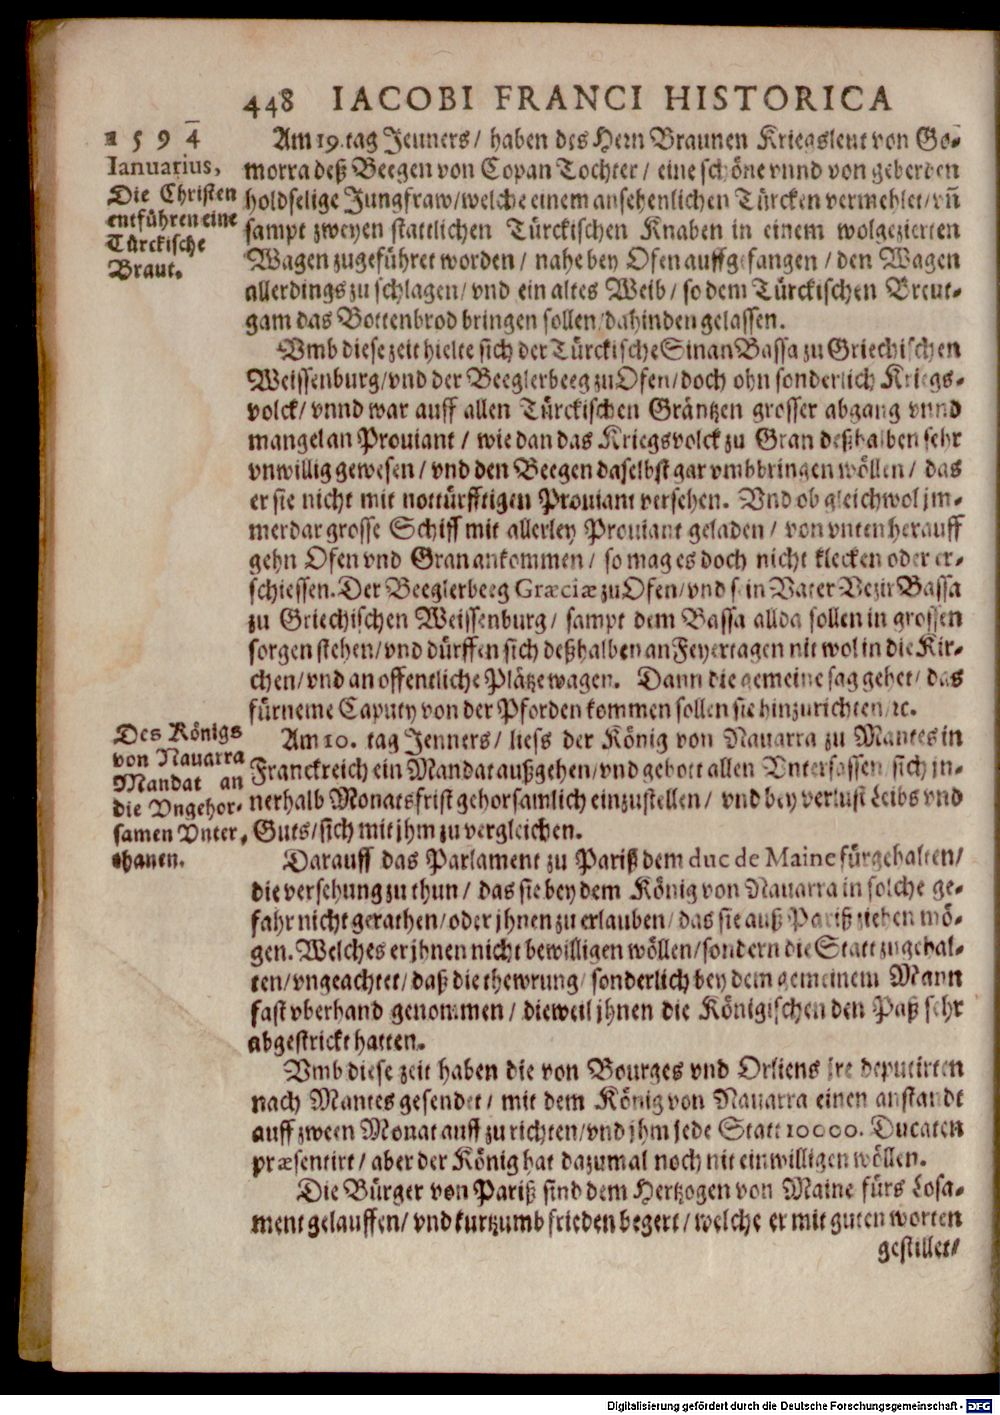 448 IACOBI FRANCI HISTORICA
1594
Ianuarius,
Die Christen
entführen eine
Türckische
Braut.
Am 19. tag Jenners / haben des Hern Braunen Kriegsleut von Go-
morra deß Beegen von Copan Tochter / eine schöne vnnd von geberden
holdselige Jungfraw / welche einem ansehenlichen Türcken vermehlet / vñ
sampt zweyen stattlichen Türckischen Knaben in einem wolgezierten
Wagen zugeführet worden / nahe bey Ofen auffgefangen / den Wagen
allerdings zu schlagen / vnd ein altes Weib / so dem Türckischen Breut-
gam das Bottenbrod bringen sollen / dahinden gelassen.
Vmb diese zeit hielte sich der Türckische Sinan Bassa zu Griechischen
Weissenburg / vnd der Beeglerbeeg zu Ofen / doch ohn sonderlich Kriegs-
volck / vnnd war auff allen Türckischen Gräntzen grosser abgang vnnd
mangel an Prouiant / wie dan das Kriegsvolck zu Gran deßhalben sehr
vnwillig gewesen / vnd den Beegen daselbst gar vmbbringen wöllen / das
er sie nicht mit nottürfftigen Prouiant versehen. Vnd ob gleichwol jm-
merdar grosse Schiff mit allerley Prouiant geladen / von vnten herauff
gehn Ofen vnd Gran ankommen / so mag es doch nicht klecken oder er-
schiessen. Der Beeglerbeeg Græciæ zu Ofen / vnd sein Vater Vezir Bassa
zu Griechischen Weissenburg / sampt dem Bassa allda sollen in grossen
sorgen stehen / vnd dürffen sich deßhalben an Feyertagen nit wol in die Kir-
chen / vnd an offentliche Plätze wagen. Dann die gemeine sag gehet / das
fürneme Caputy von der Pforden kommen sollen sie hinzurichten / ꝛc.
Des Königs
von Nauarra
Mandat an
die Vngehor-
samen Vnter,
thanen.
Am 20. tag Jenners / liess der König von Nauarra zu Mantes in
Franckreich ein Mandat außgehen / vnd gebott allen Vntersassen sich in-
nerhalb Monatsfrist gehorsamlich einzustellen / vnd bey verlust Leibs vnd
Guts / sich mit jhm zu vergleichen.
Darauff das Parlament zu Pariß dem duc de Maine fürgehalten /
die versehung zu thun / das sie bey dem König von Nauarra in solche ge-
fahr nicht gerathen / oder jhnen zu erlauben / das sie auß Pariß ziehen mö-
gen. Welches er jhnen nicht bewilligen wöllen / sondern die Statt zugehal-
ten / vngeachtet / daß die thewrung / sonderlich bey dem gemeinem Mann
fast vberhand genommen / dieweil jhnen die Königischen den Paß sehr
abgestrickt hatten.
Vmb diese zeit haben die von Bourges vnd Orliens jre deputirten
nach Mantes gesendet / mit dem König von Nauarra einen anstandt
auff zween Monat auff zu richten / vnd jhm jede Statt 10000. Ducaten
præsentirt / aber der König hat dazumal noch nit einwilligen wöllen.
Die Bürger von Pariß sind dem Hertzogen von Maine fürs Losa-
ment gelauffen / vnd kurtzumb frieden begert / welche er mit guten worten
gestillet /
Digitalisierung gefördert durch die Deutsche Forschungsgemeinschaft - DFG